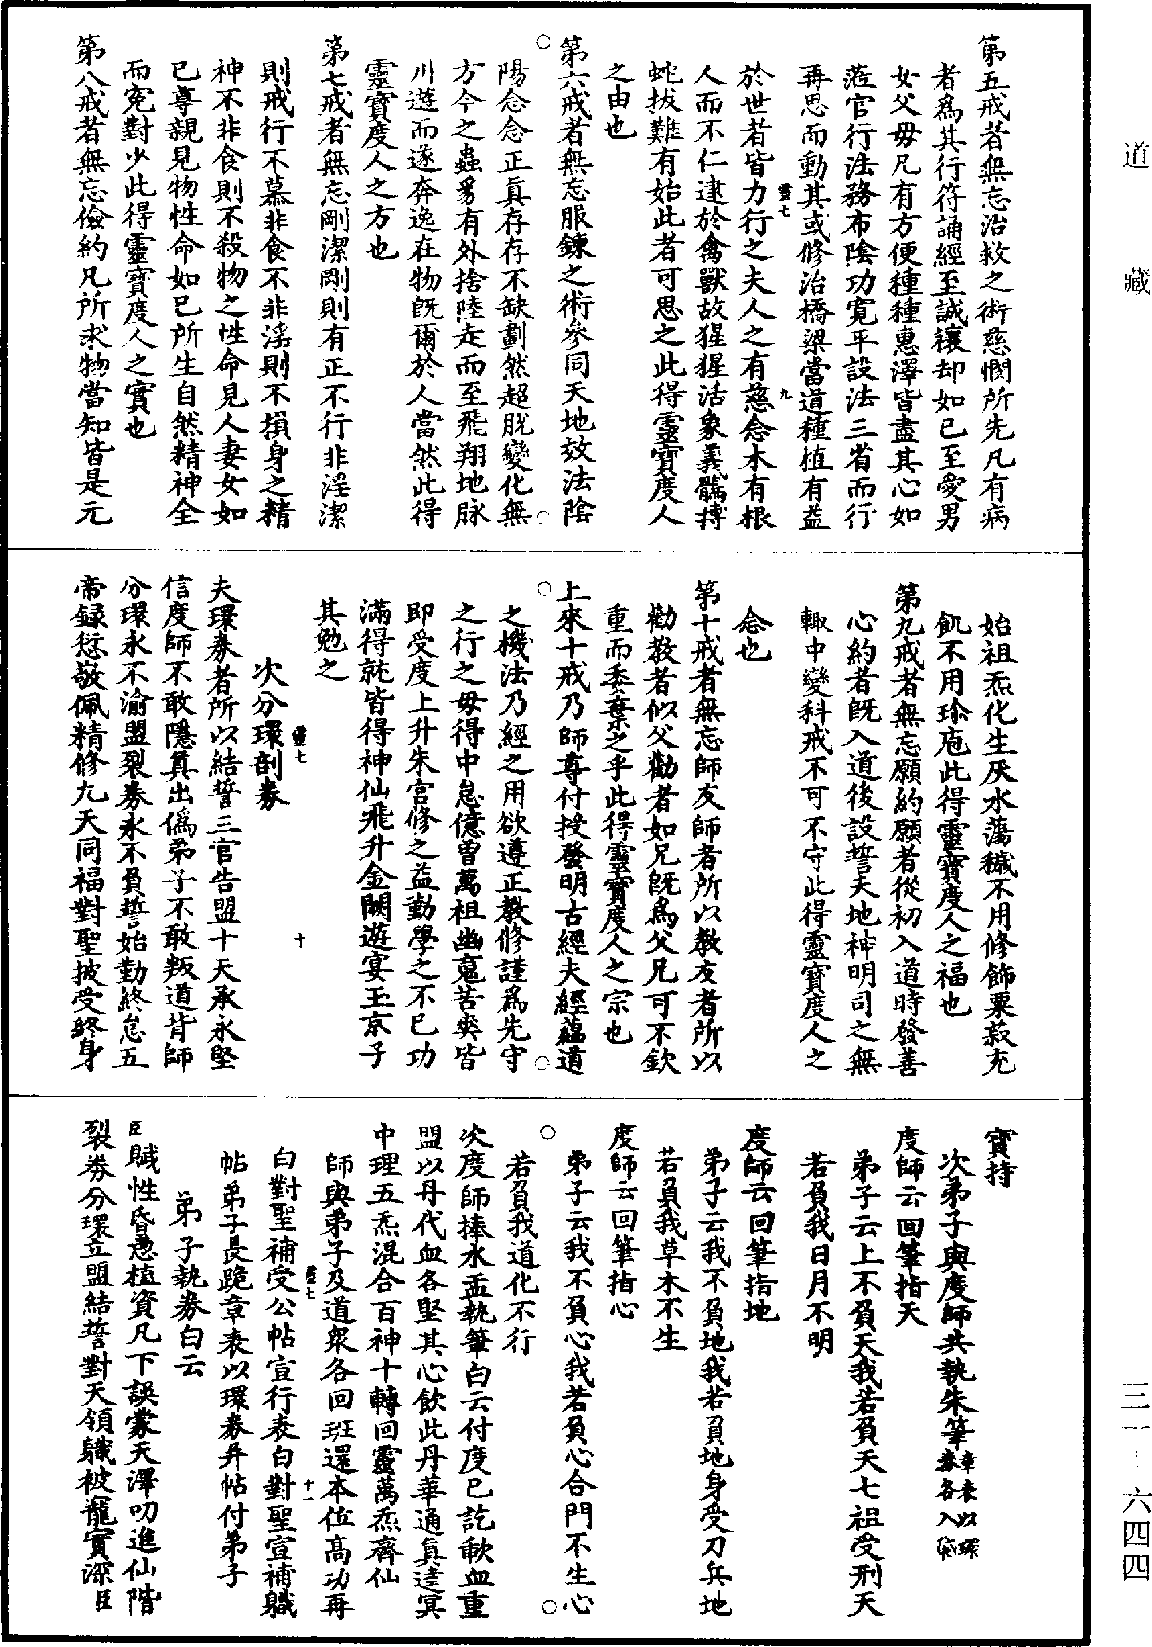 道藏
三一—六四四
第五戒者無忘治救之術慈憫所先凡有病
者為其行符誦經至誠禳却如已至愛男
女父母凡有方便種種惠澤皆盡其心如
蒞官行法務布陰功寬平設法三省而行
再思而動其或修治橋梁當道種植有益
靈七
九
於世者皆力行之夫人之有慈念木有根
人而不仁逮於禽獸故猩猩活象義鶻搏
蛇拔難有始此者可思之此得靈寶度人
之由也
第六戒者無忘服鍊之術參同天地效法陰
陽念念正真存存不缺劃然超脫變化無
方今之蟲豸有外捨陸走而至飛翔地脉
川遊而遂奔逸在物旣爾於人當然此得
靈寶度人之方也
第七戒者無忘剛潔剛則有正不行非淫潔
則戒行不慕非食不非淫則不損身之精
神不非食則不殺物之性命見人妻女如
已尊親見物性命如已所生自然精神全
而寃對少此得靈寶度人之實也
第八戒者無忘儉約凡所求物當知皆是元
始祖炁化生厌水蕩穢不用修飾粟菽充
飢不用珍庖此得靈寶度人之福也
第九戒者無忘願約願者從初入道時發善
心約者旣入道後設誓天地神明司之無
輙中變科戒不可不守此得靈寶度人之
念也
第十戒者無忘師友師者所以教友者所以
勸教者似父勸者如兄旣為父兄可不欽
重而委棄之乎此得靈寶度人之宗也
上來十戒乃師尊付授發明古經夫經蘊道
之機法乃經之用欲遵正教修謹為先守
之行之毋得中怠億曾萬祖幽䰟苦爽皆
即受度上升朱宮修之益勤學之不已功
滿得就皆得神仙飛升金闕遊宴玉京子
其勉之
靈七
十
次分環剖券
夫環券者所以結誓三官告盟十天承永堅
信度師不敢隱真出偽弟子不敢叛道背師
分環永不渝盟裂券永不負誓始勤終怠五
帝録愆敬佩精修九天同福對聖披受終身
寶持
次弟子與度師共執朱筆章表以環券各入袋
度師云回筆指天
弟子云上不負天我若負天七祖受刑天
若負我日月不明
度師云回筆指地
弟子云我不負地我若負地身受刀兵地
若負我草木不生
度師云回筆指心
弟子云我不負心我若負心合門不生心
若負我道化不行
次度師捧水盂執筆白云付度已訖歃血重
盟以丹代血各堅其心飲此丹華通真達冥
中理五炁混合百神十轉回靈萬炁齊仙
師與弟子及道衆各回班還本位高功再
靈七
十一
白對聖補受公帖宣行表白對聖宣補職
帖弟子長跪章表以環券并帖付弟子
弟子執券白云
臣賦性昏愚植資凡下誤蒙天澤叨進仙階
裂券分環立盟結誓對天領職被寵實深臣